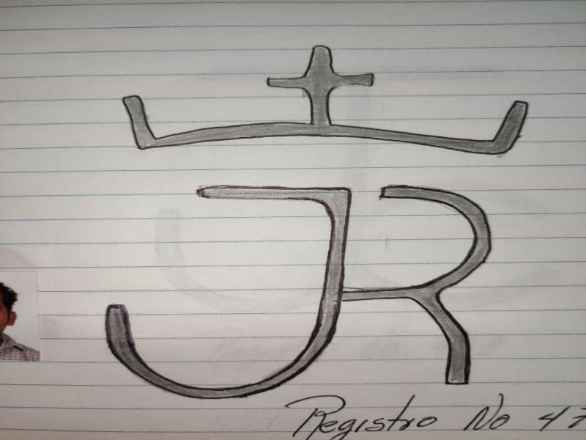 JR
Registro No 47